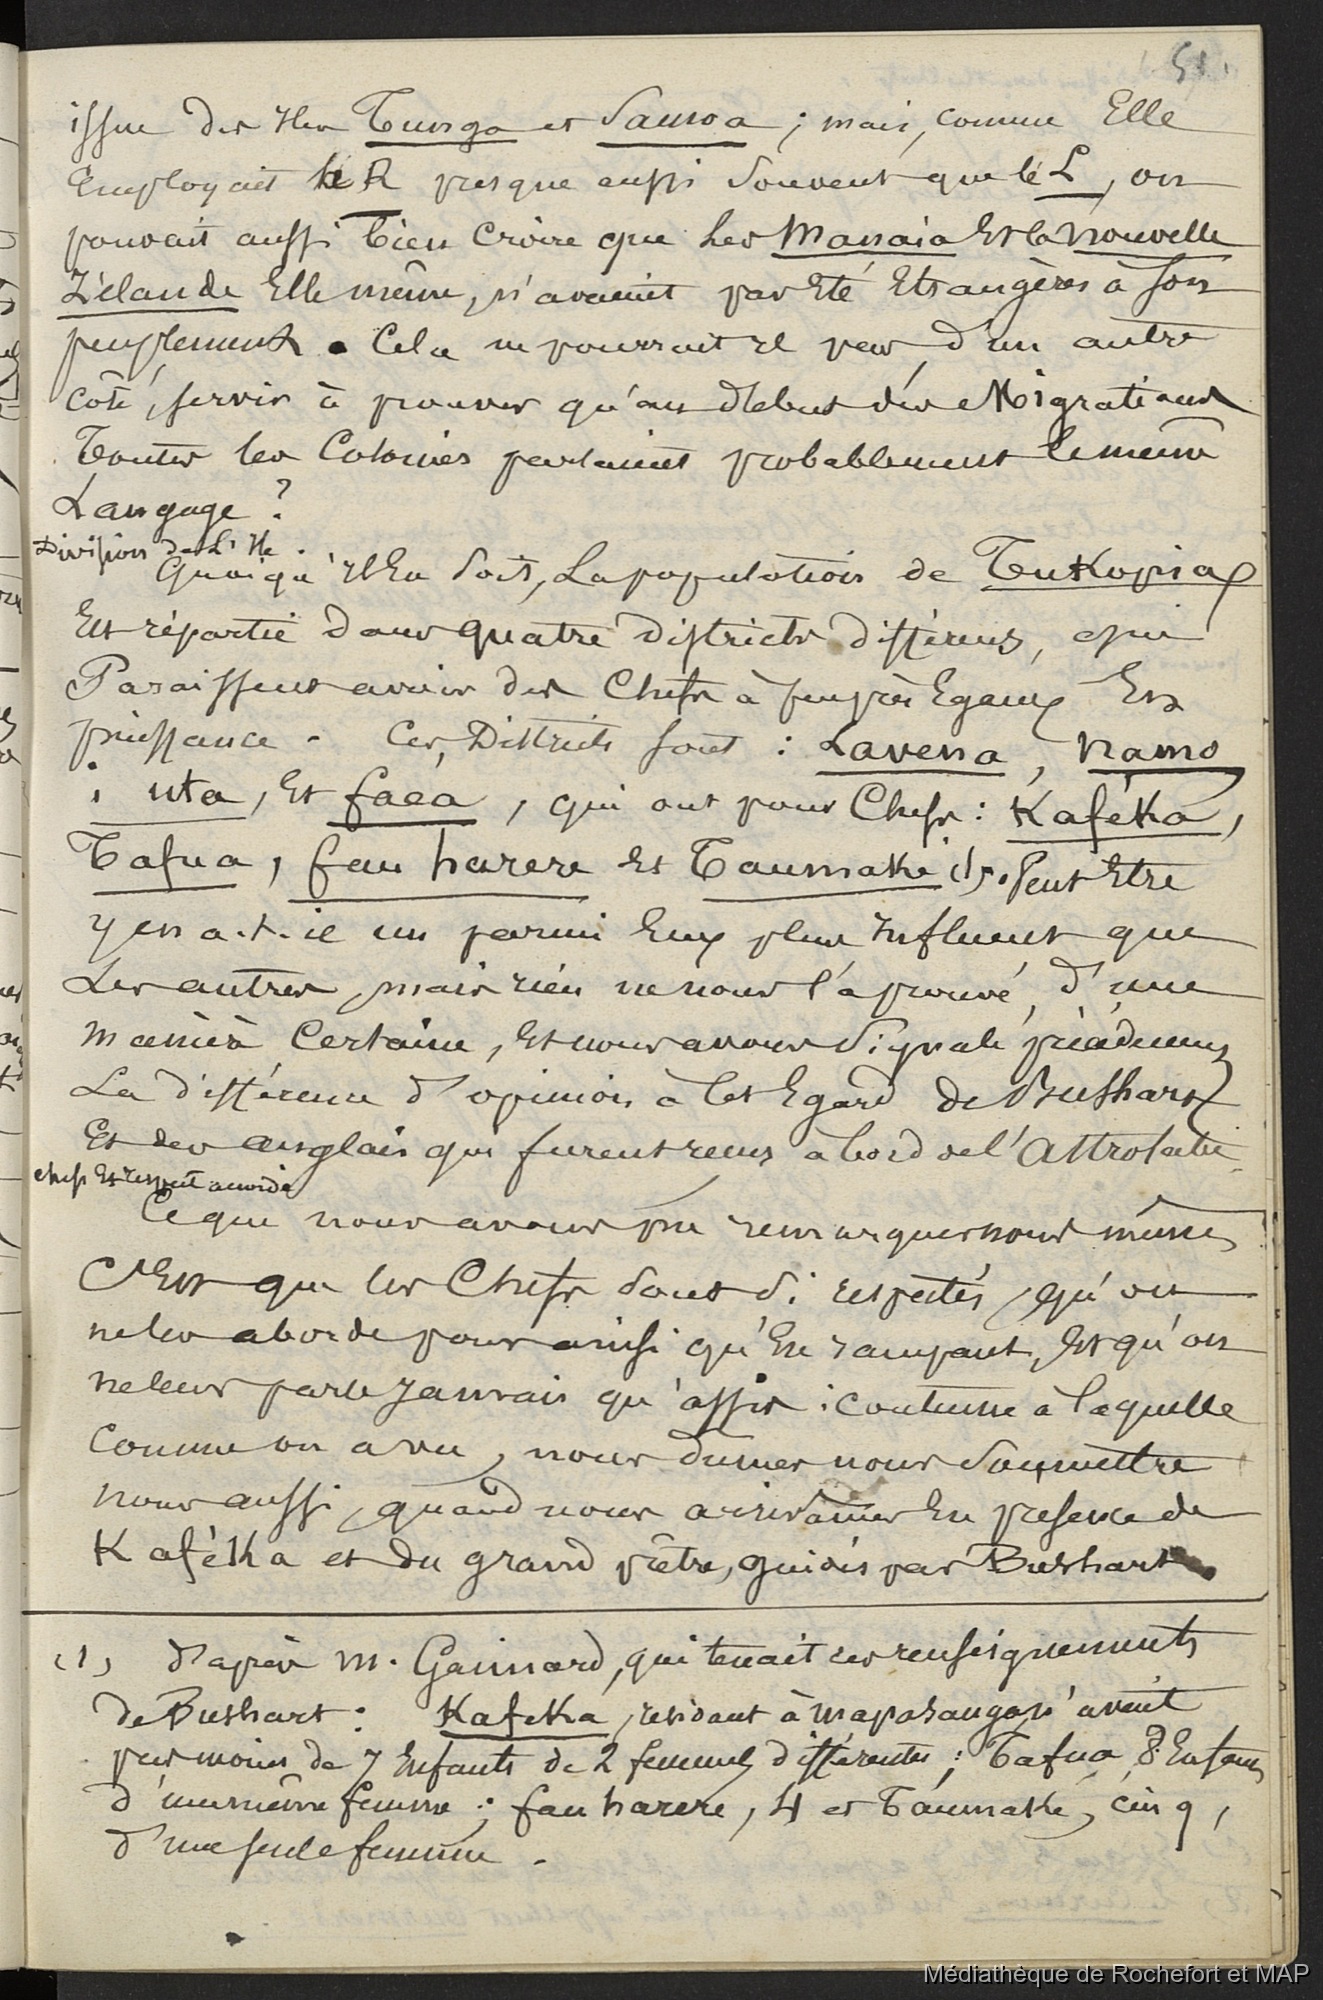 51.
issue des Iles Tunga et Samoa ; mais, comme Elle
Employait le R presque aussi souvent que le L, on
pouvait aussi bien croire que les Manaia Et la Nouvelle
Zélande Elle même, n'avaient pas Eté Etrangères à son
peuplement. Cela ne pourrait il pas, d'un autre
côté, servir à prouver qu'au début des Migrations
Toutes les Colonies parlaient probablement le même
Langage ?
Division de L'Ile.
Quoiqu'il En soit, La population de Tukopia
Est répartie dans quatre districts différens, qui
Paraissent avoir des Chefs à peu près Egaux En
puissance. Ces Districts sont : Lavena, Namo
, uta, Et faéa, qui ont pour Chefs : Kaféka,
Tafua, fau harere Et Taumaké (1). Peut Etre
y en a-t-il un parmi Eux plus Influent que
Les autres, mais rien ne nous l'a prouvé, d'une
manière Certaine, Et nous avons signalé précédemment
La différence d'opinion à cet Egard de Bushart
Et des anglais qui furent reçus à bord de l'Astrolabe
chefs Et respect accordé
Ce que nous avons pu remarquer nous mêmes
C'Est que les Chefs sont si respectés, qu'on
ne les aborde pour ainsi qu'En rampant, Et qu'on
ne leur parle Jamais qu'assis : coutume à laquelle
Comme on a vu, nous dumes nous soumettre
nous aussi, quand nous arrivâmes En présence de
Kaféka et du grand prêtre, guidés par Bushart
(1) d'après M. Gaimard, qui tenait ces renseignements
de Bushart : Kaféka, résidant à avait
pas moins de 7 Enfants de 2 femmes différentes ; Tafua, 8 Enfans
d'une même femme ; fau harere, 4 et Taumaké, cinq,
d'une seule femme.
Médiathèque de Rochefort et MAP